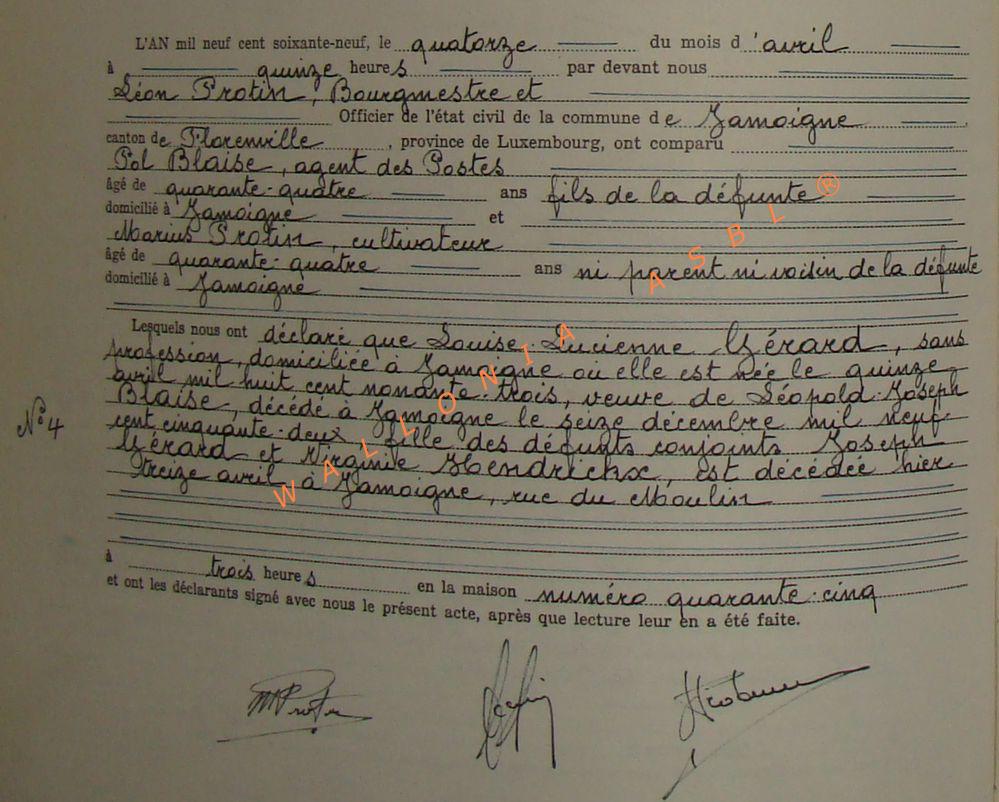 L'AN mil neuf cent soixante-neuf, le quatorze du mois d'avril
à quinze heures par devant nous
Léon Protin, Bourgmestre et
Officier de l'état civil de la commune de Jamoigne
canton de Florenville, province de Luxembourg, ont comparu
Pol Blaise, agent des Postes
âgé de quarante-quatre ans fils de la défunte
domicilié à Jamoigne et
Marius Protin, cultivateur
âgé de quarante-quatre ans ni parent ni voisin de la défunte
domicilié à Jamoigne
Lesquels nous ont déclaré que Louise-Lucienne Gérard, sans
profession, domiciliée à Jamoigne où elle est née le quinze
avril mil huit cent nonante-trois, veuve de Léopold-Joseph
Blaise, décédé à Jamoigne le seize décembre mil neuf
cent cinquante-deux, fille des défunts conjoints Joseph
N°4
Gérard et Virginie Hendrickx, est décédée hier
treize avril à Jamoigne, rue du Moulin
à trois heures en la maison numéro quarante-cinq
et ont les déclarants signé avec nous le présent acte, après que lecture leur en a été faite.
WALLONIA ASBL ®